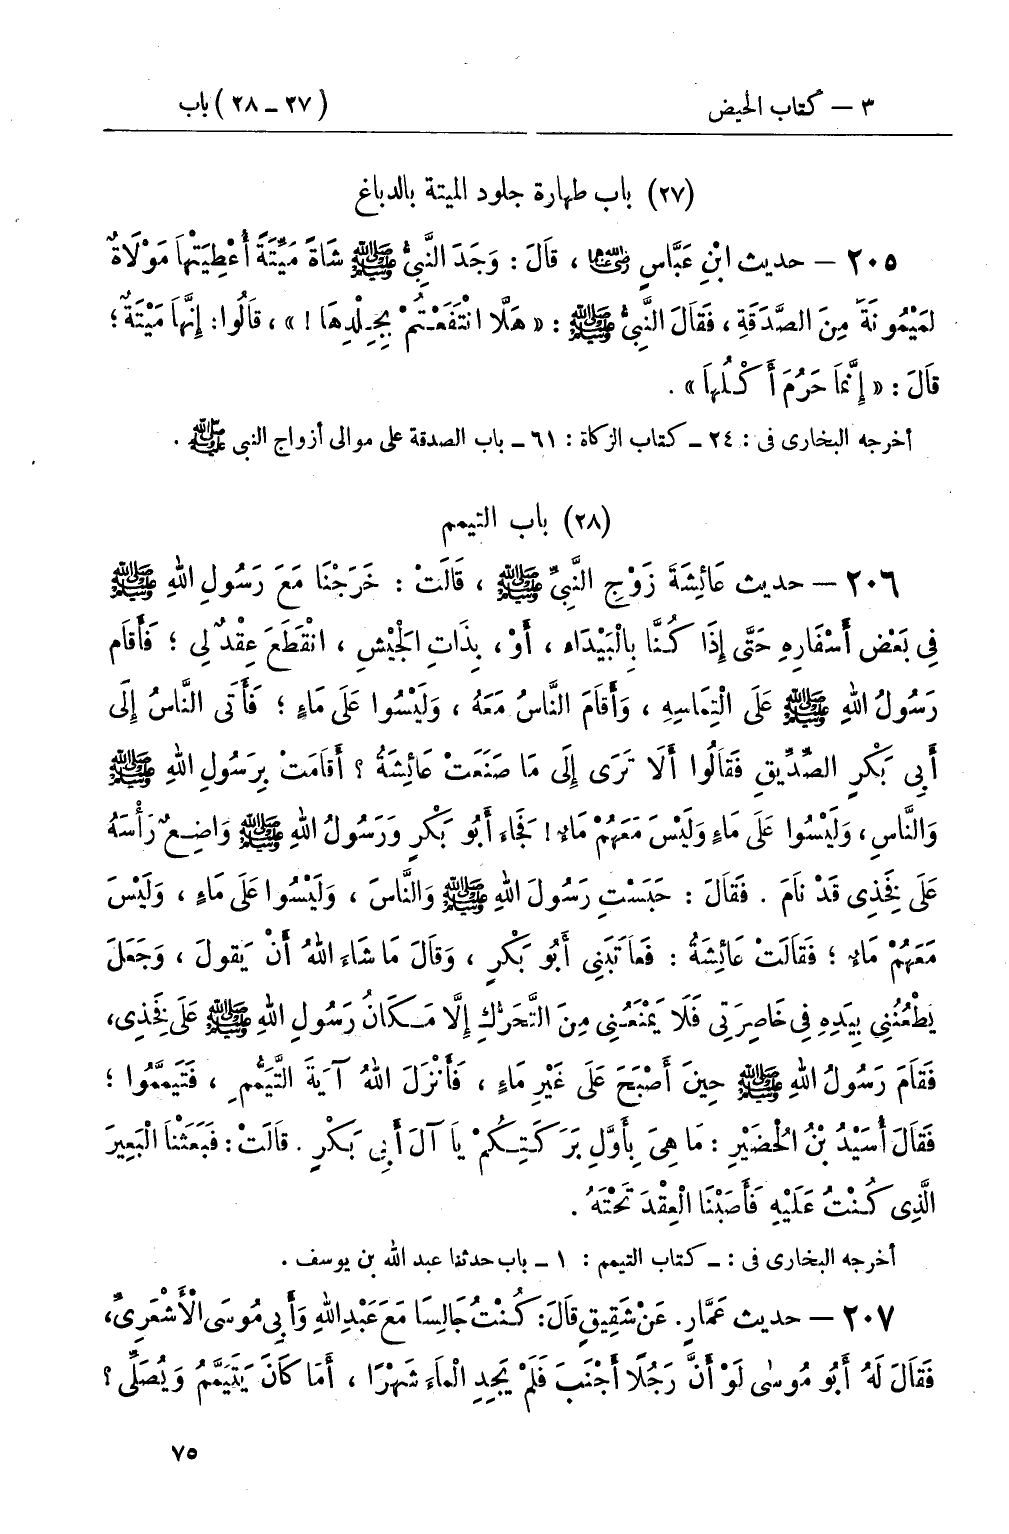 ٣ — كتاب الحيض (٢٧ ـ ٢٨) باب
(٢٧) باب طهارة جلود الميتة بالدباغ
٢٠٥ — حديث ابْنِ عَبَّاسٍ رضي الله عنهما ، قَالَ : وَجَدَ النَّبِيُّ ﷺ شَاةً مَيِّتَةً أُعْطِيَتْهَا مَوْلَاةٌ
لِمَيْمُونَةَ مِنَ الصَّدَقَةِ ، فَقَالَ النَّبِيُّ ﷺ : « هَلَّا انْتَفَعْتُمْ بِجِلْدِهَا ! » ، قَالُوا : إِنَّهَا مَيْتَةٌ ؛
قَالَ : « إِنَّمَا حَرُمَ أَكْلُهَا » .
أخرجه البخارى فى : ٢٤ ـ كتاب الزكاة : ٦١ ـ باب الصدقة على موالى أزواج النبى ﷺ .
(٢٨) باب التيمم
٢٠٦ — حديث عَائِشَةَ زَوْجِ النَّبِيِّ ﷺ ، قَالَتْ : خَرَجْنَا مَعَ رَسُولِ اللهِ ﷺ
فِى بَعْضِ أَسْفَارِهِ حَتَّى إِذَا كُنَّا بِالْبَيْدَاءِ ، أَوْ ، بِذَاتِ الْجَيْشِ ، انْقَطَعَ عِقْدٌ لِى ؛ فَأَقَامَ
رَسُولُ اللهِ ﷺ عَلَى الْتِمَاسِهِ ، وَأَقَامَ النَّاسُ مَعَهُ ، وَلَيْسُوا عَلَى مَاءٍ ؛ فَأَتَى النَّاسُ إِلَى
أَبِى بَكْرٍ الصِّدِّيقِ فَقَالُوا أَلَا تَرَى إِلَى مَا صَنَعَتْ عَائِشَةُ ؟ أَقَامَتْ بِرَسُولِ اللهِ ﷺ
وَالنَّاسِ ، وَلَيْسُوا عَلَى مَاءٍ وَلَيْسَ مَعَهُمْ مَاءٌ ! فَجَاءَ أَبُو بَكْرٍ وَرَسُولُ اللهِ ﷺ وَاضِعٌ رَأْسَهُ
عَلَى فَخِذِى قَدْ نَامَ . فَقَالَ : حَبَسْتِ رَسُولَ اللهِ ﷺ وَالنَّاسَ ، وَلَيْسُوا عَلَى مَاءٍ ، وَلَيْسَ
مَعَهُمْ مَاءٌ ؛ فَقَالَتْ عَائِشَةُ : فَعَاتَبَنِى أَبُو بَكْرٍ ، وَقَالَ مَا شَاءَ اللهُ أَنْ يَقُولَ ، وَجَعَلَ
يَطْعُنُنِي بِيَدِهِ فِى خَاصِرَتِى فَلَا يَمْنَعُنِى مِنَ التَّحَرُّكِ إِلَّا مَكَانُ رَسُولِ اللهِ ﷺ عَلَى فَخِذِى ،
فَقَامَ رَسُولُ اللهِ ﷺ حِينَ أَصْبَحَ عَلَى غَيْرِ مَاءٍ ، فَأَنْزَلَ اللهُ آيَةَ التَّيَمُّمِ ، فَتَيَمَّمُوا ؛
فَقَالَ أُسَيْدُ بْنُ الْحُضَيْرِ : مَا هِىَ بِأَوَّلِ بَرَكَتِكُمْ يَا آلَ أَبِى بَكْرٍ . قَالَتْ : فَبَعَثْنَا الْبَعِيرَ
الَّذِى كُنْتُ عَلَيْهِ فَأَصَبْنَا الْعِقْدَ تَحْتَهُ .
أخرجه البخارى فى : ـ كتاب التيمم : ١ ـ باب حدثنا عبد الله بن يوسف .
٢٠٧ — حديث عَمَّارٍ . عَنْ شَقِيقٍ قَالَ : كُنْتُ جَالِسًا مَعَ عَبْدِ اللهِ وَأَبِى مُوسَى الْأَشْعَرِىِّ ،
فَقَالَ لَهُ أَبُو مُوسَى لَوْ أَنَّ رَجُلًا أَجْنَبَ فَلَمْ يَجِدِ الْمَاءَ شَهْرًا ، أَمَا كَانَ يَتَيَمَّمُ وَيُصَلِّى ؟
٧٥